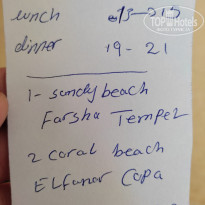 lunch 13-515
dinner 19-21
1- sandy beach
Farsha Tempel
2 coral beach
ELFanar Copa
TopHotels